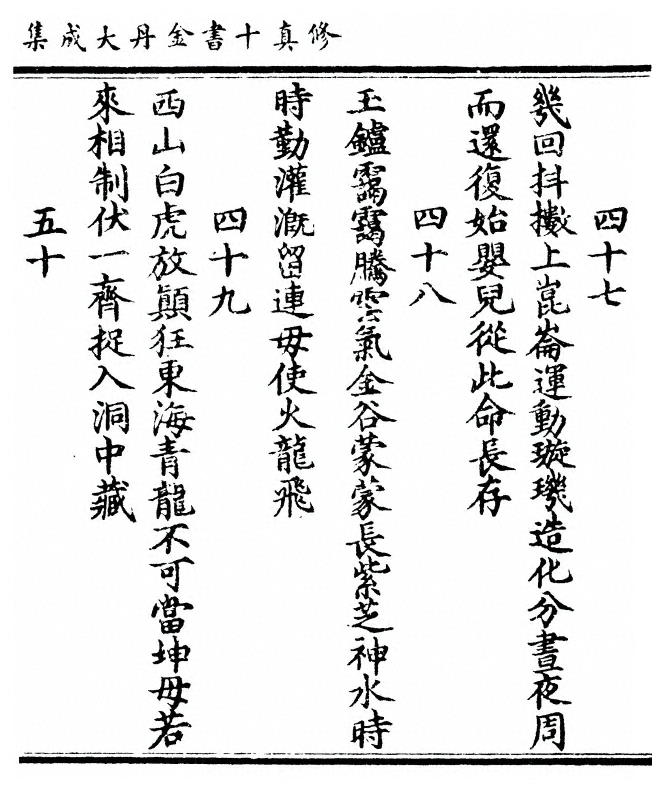 修真十書金丹大成集
四十七
幾回抖擻上崑崙運動璇璣造化分晝夜周
而還復始嬰兒從此命長存
四十八
玉鑪靄靄騰雲氣金谷蒙蒙長紫芝神水時
時勤灌溉留連毋使火龍飛
四十九
西山白虎放顛狂東海青龍不可當坤母若
來相制伏一齊捉入洞中藏
五十